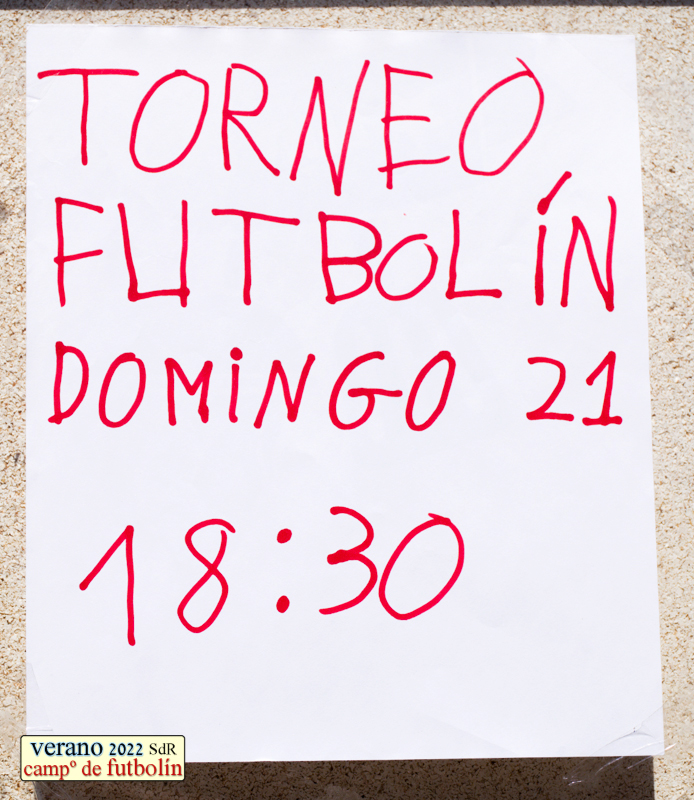 TORNEO
FUTBOLÍN
DOMINGO 21
18:30
verano 2022 SdR
campº de futbolín